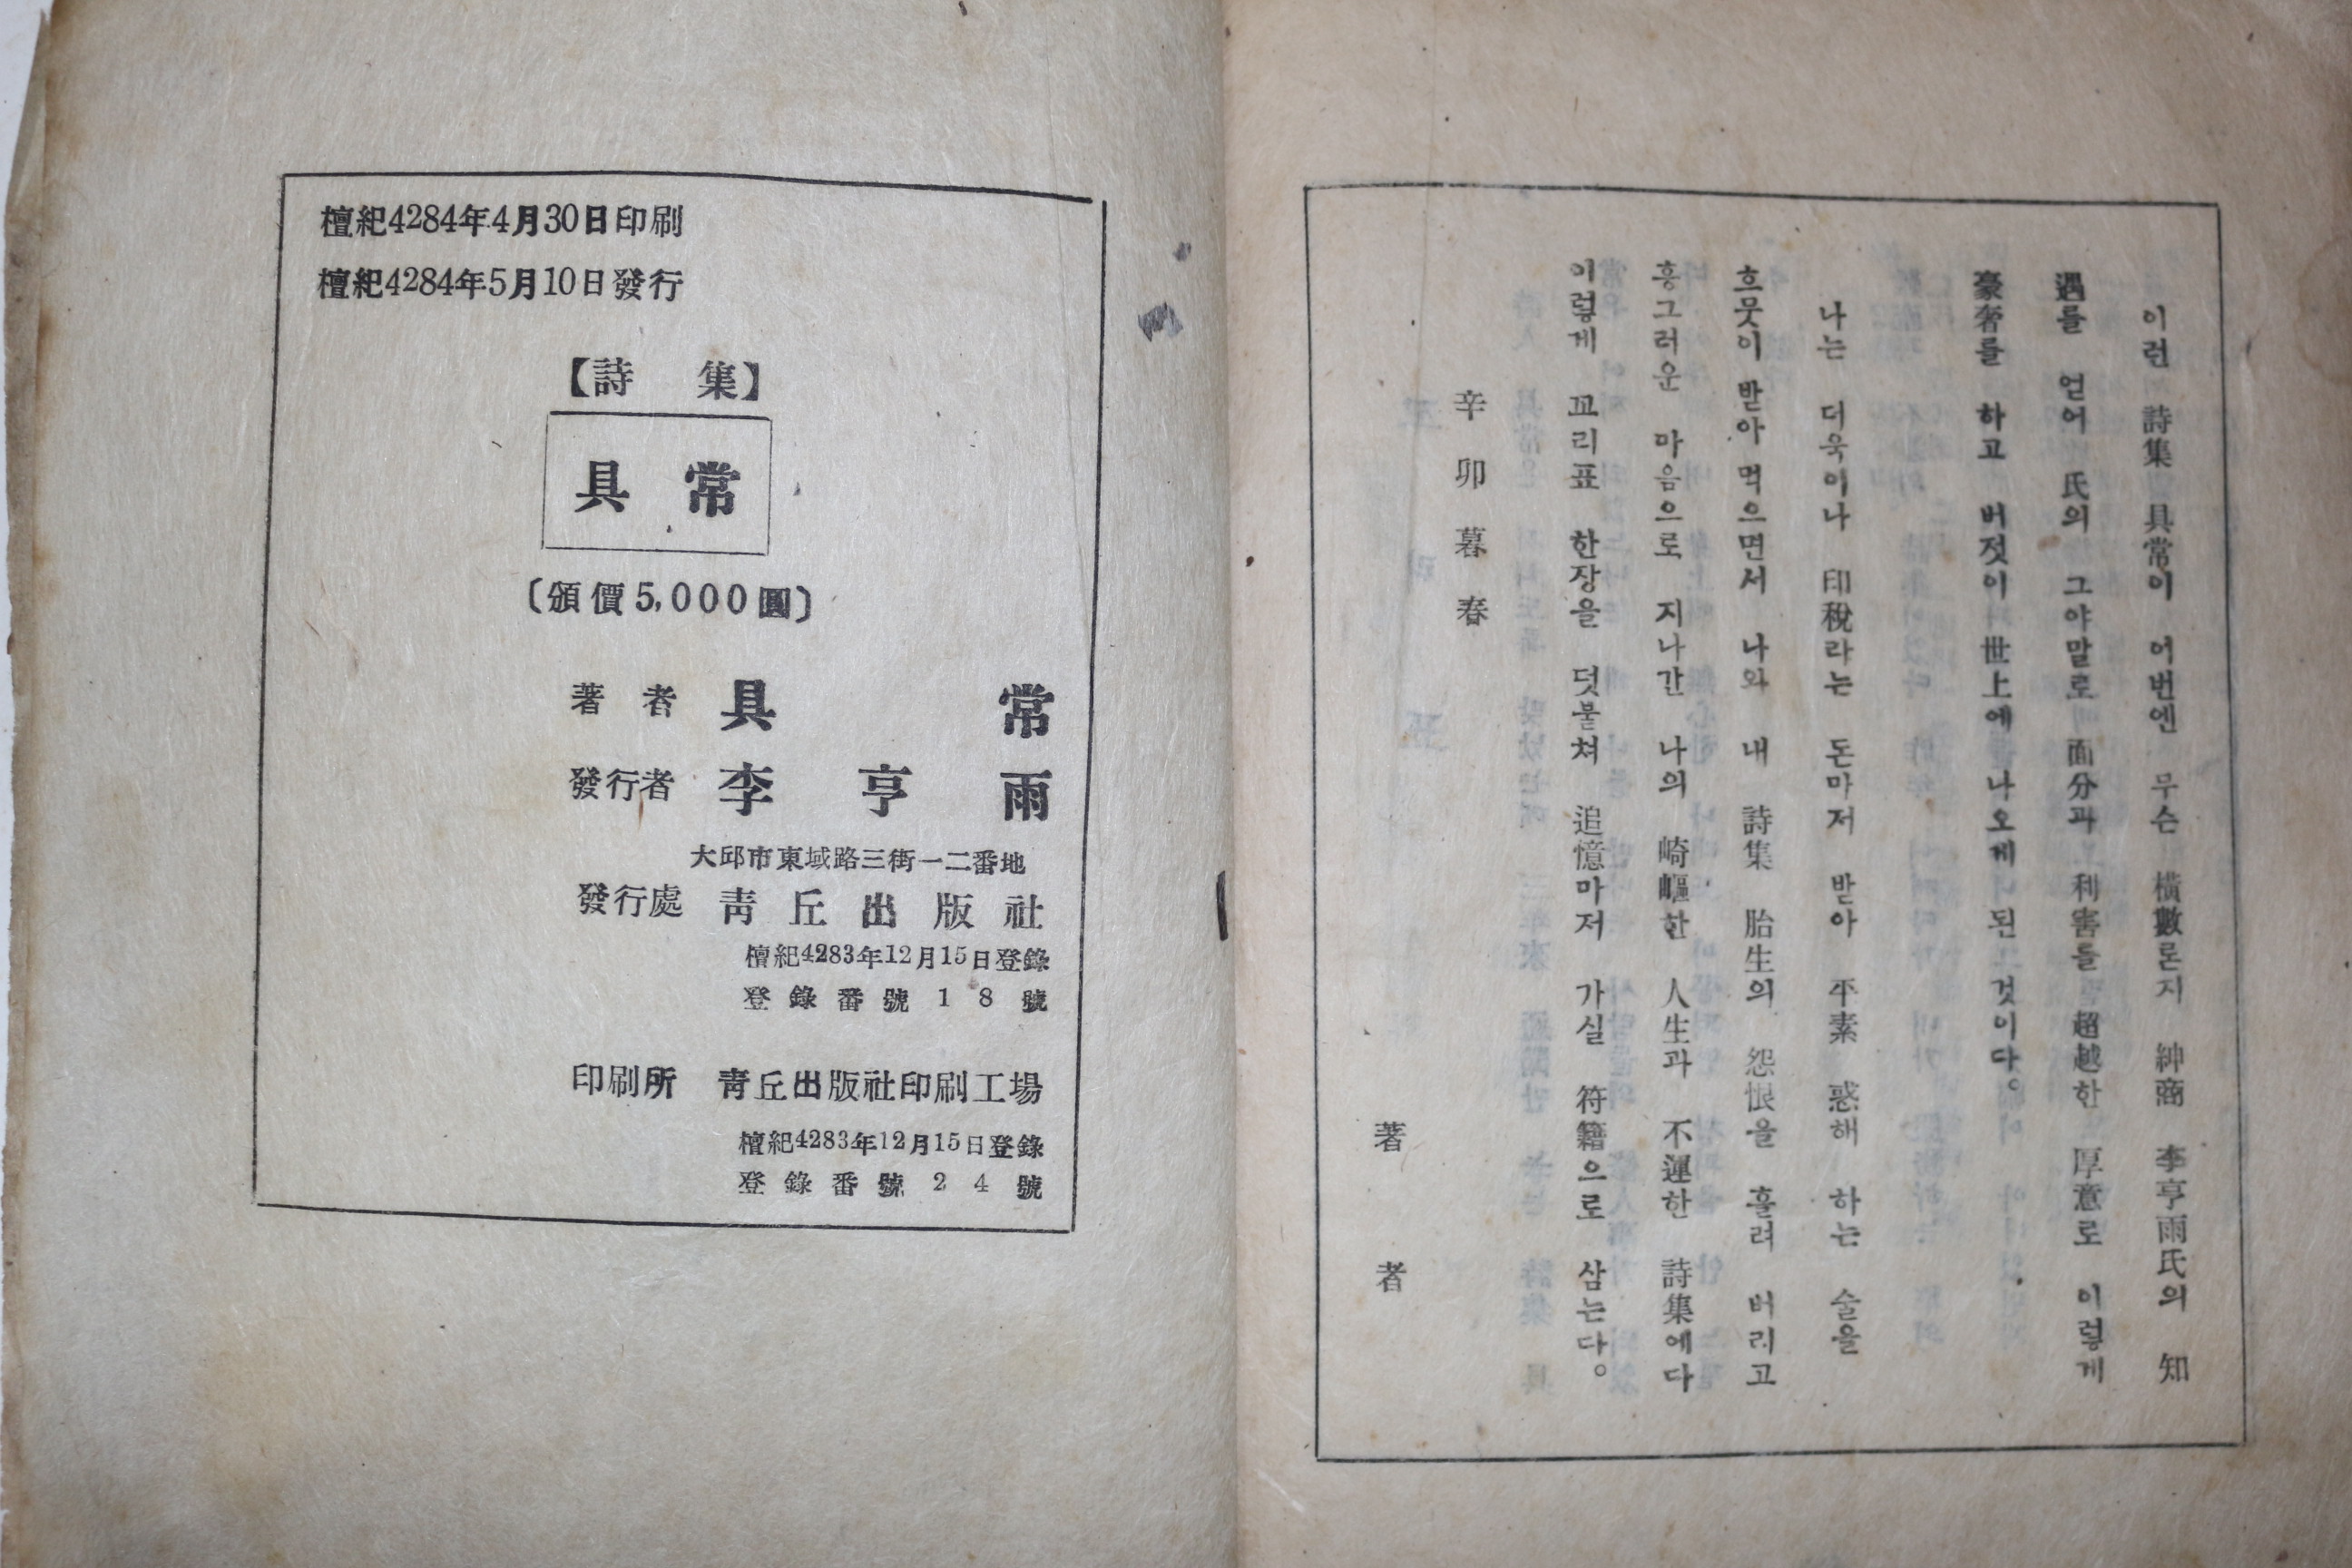 이런 詩集 具常이 어번엔 무슨 橫數론지 紳商 李亨雨氏의 知
遇를 얻어 氏의 그야말로 面分과 利害들 超越한 厚意로 이렇게
豪奢를 하고 버젓이 世上에 나오게 된 것이다。
나는 더욱이나 印稅라는 돈마저 받아 平素 惑해 하는 술을
흐뭇이 받아 먹으면서 나와 내 詩集 胎生의 怨恨을 흘려 버리고
흥그러운 마음으로 지나간 나의 崎嶇한 人生과 不運한 詩集에다
이렇게 꼬리표 한장을 덧붙쳐 追憶마저 가실 符籍으로 삼는다。
辛卯暮春
著者
檀紀4284年4月30日印刷
檀紀4284年5月10日發行
【詩 集】
具 常
〔頒價5,000圓〕
著 者 具 常
發行者 李 亨 雨
大邱市東域路三街一二番地
發行處 靑丘出版社
檀紀4283年12月15日登錄
登錄番號18號
印刷所 靑丘出版社印刷工場
檀紀4283年12月15日登錄
登錄番號24號